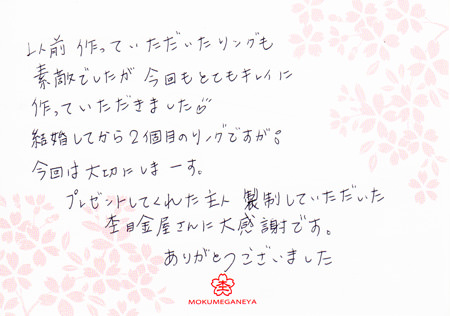 以前 作っていただいたリングも
素敵でしたが 今回もとてもキレイに
作っていただきました♡
結婚してから2個目のリングですが。
今回は大切にしまーす。
プレゼントしてくれた主人 製制していただいた
杢目金屋さんに大感謝です。
ありがとうございました
MOKUMEGANEYA